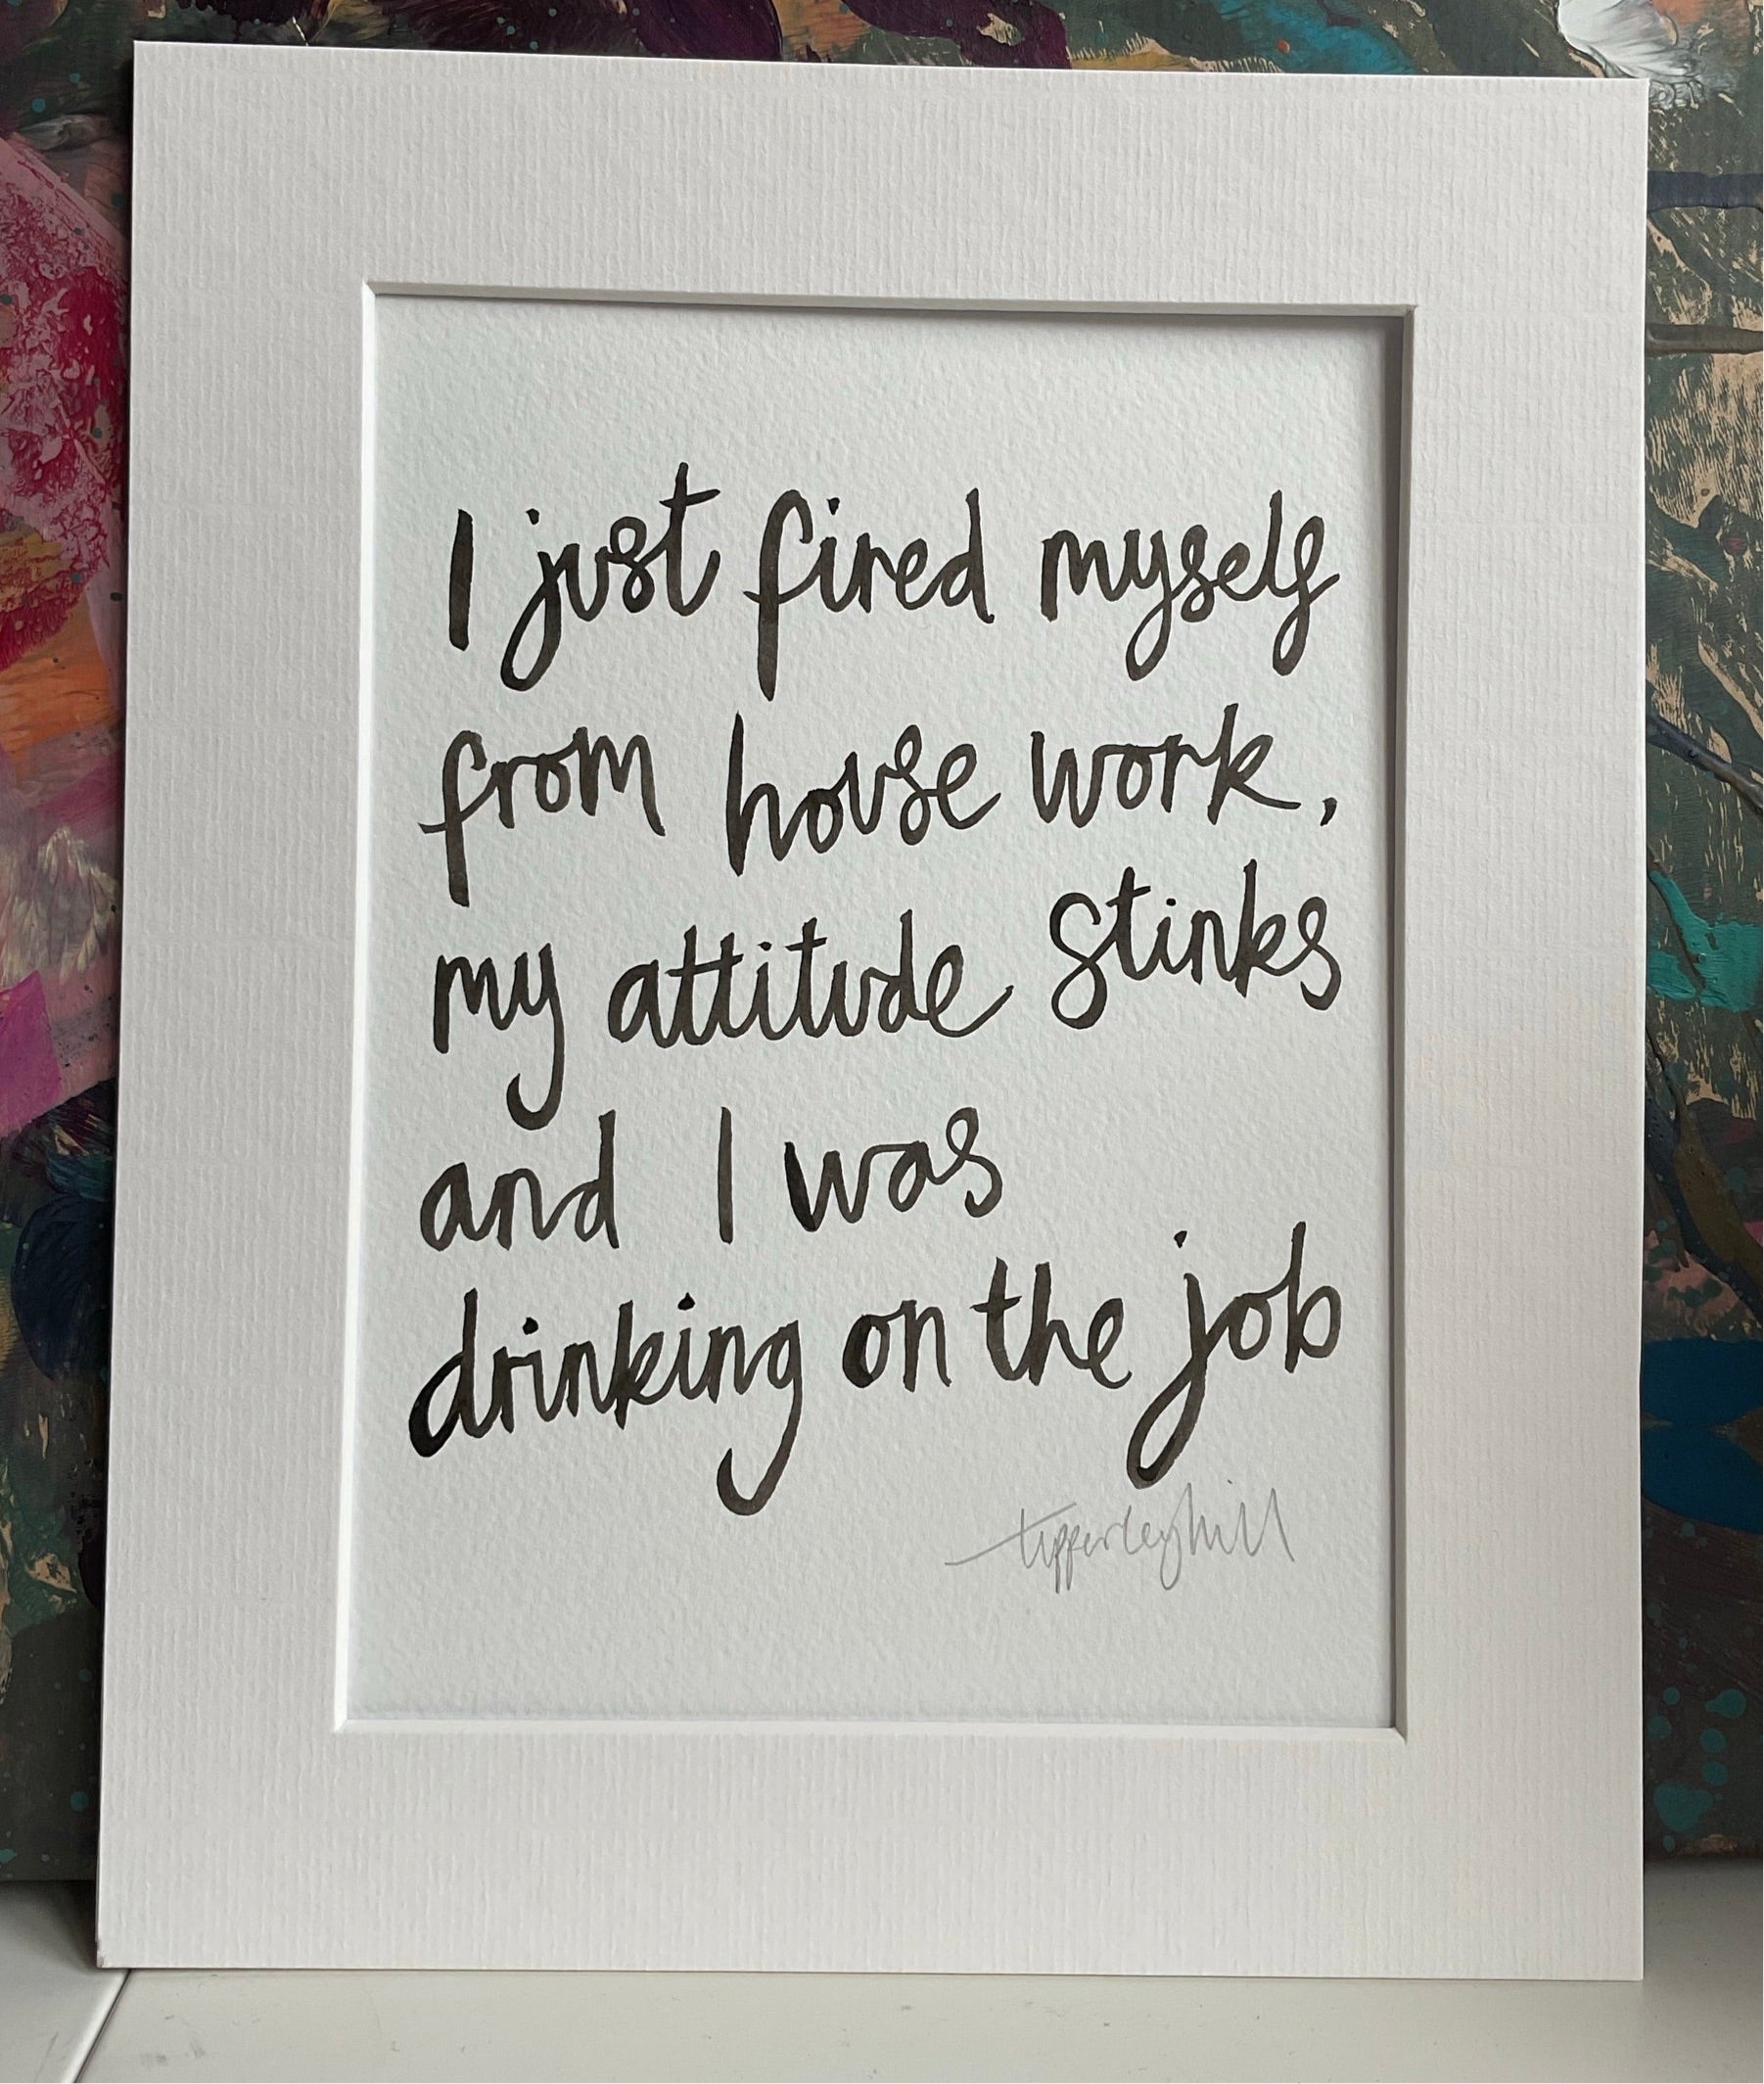 I just fired myself
from house work,
my attitude stinks
and I was
drinking on the job
tipperleyhill